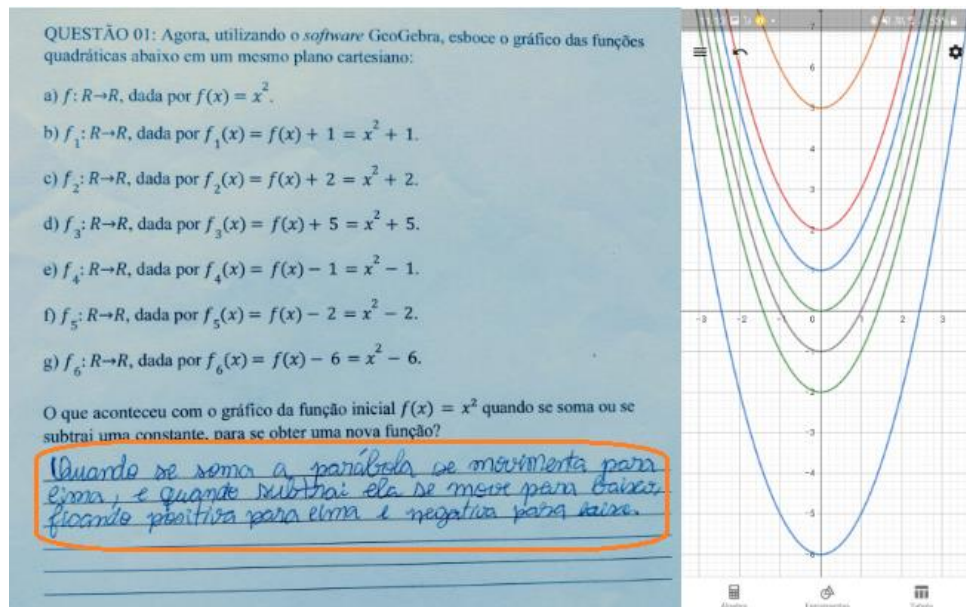 QUESTÃO 01: Agora, utilizando o software GeoGebra, esboce o gráfico das funções
quadráticas abaixo em um mesmo plano cartesiano:
a) f: R→R, dada por f(x) = x².
b) f₁: R→R, dada por f₁(x) = f(x) + 1 = x² + 1.
c) f₂: R→R, dada por f₂(x) = f(x) + 2 = x² + 2.
d) f₃: R→R, dada por f₃(x) = f(x) + 5 = x² + 5.
e) f₄: R→R, dada por f₄(x) = f(x) − 1 = x² − 1.
f) f₅: R→R, dada por f₅(x) = f(x) − 2 = x² − 2.
g) f₆: R→R, dada por f₆(x) = f(x) − 6 = x² − 6.
O que aconteceu com o gráfico da função inicial f(x) = x² quando se soma ou se
subtrai uma constante, para se obter uma nova função?
Quando se soma a parábola se movimenta para
cima, e quando subtrai ela se move para baixo,
ficando positiva para cima e negativa para baixo.
7
6
5
4
3
2
1
-3 -2 0 2 3
-1
-2
-3
-4
-5
-6